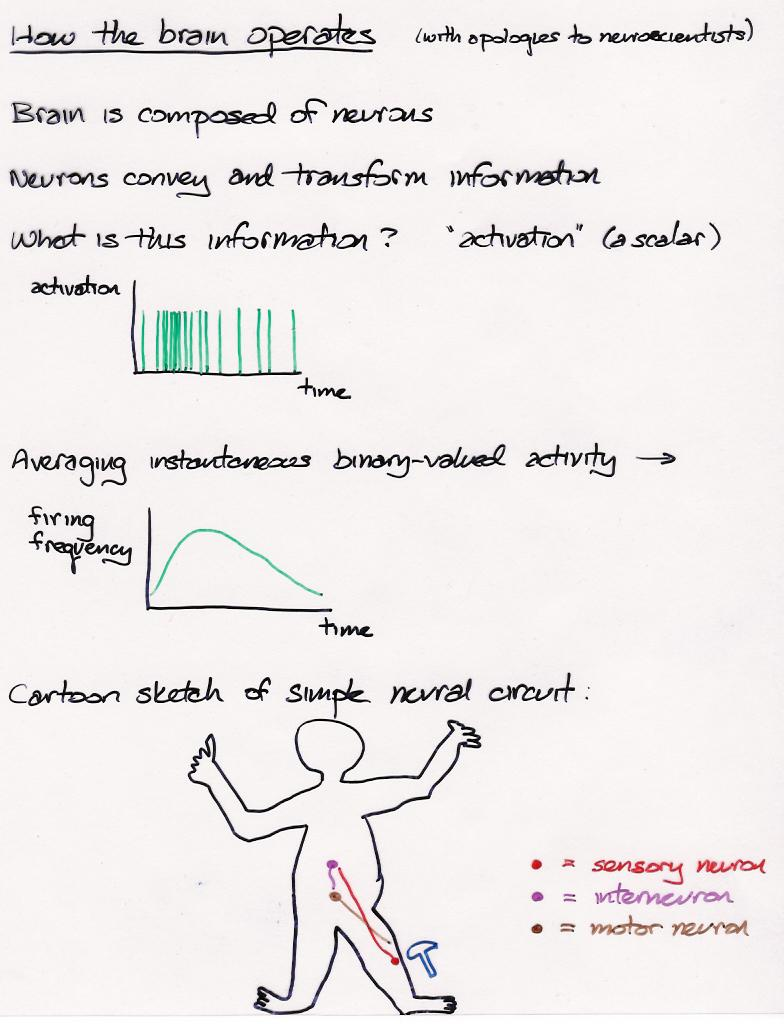 How the brain operates (with apologies to neuroscientists)
Brain is composed of neurons
Neurons convey and transform information
What is this information? "activation" (a scalar)
activation
time
Averaging instantaneous binary-valued activity →
firing
frequency
time
Cartoon sketch of simple neural circuit:
• = sensory neuron
• = interneuron
• = motor neuron